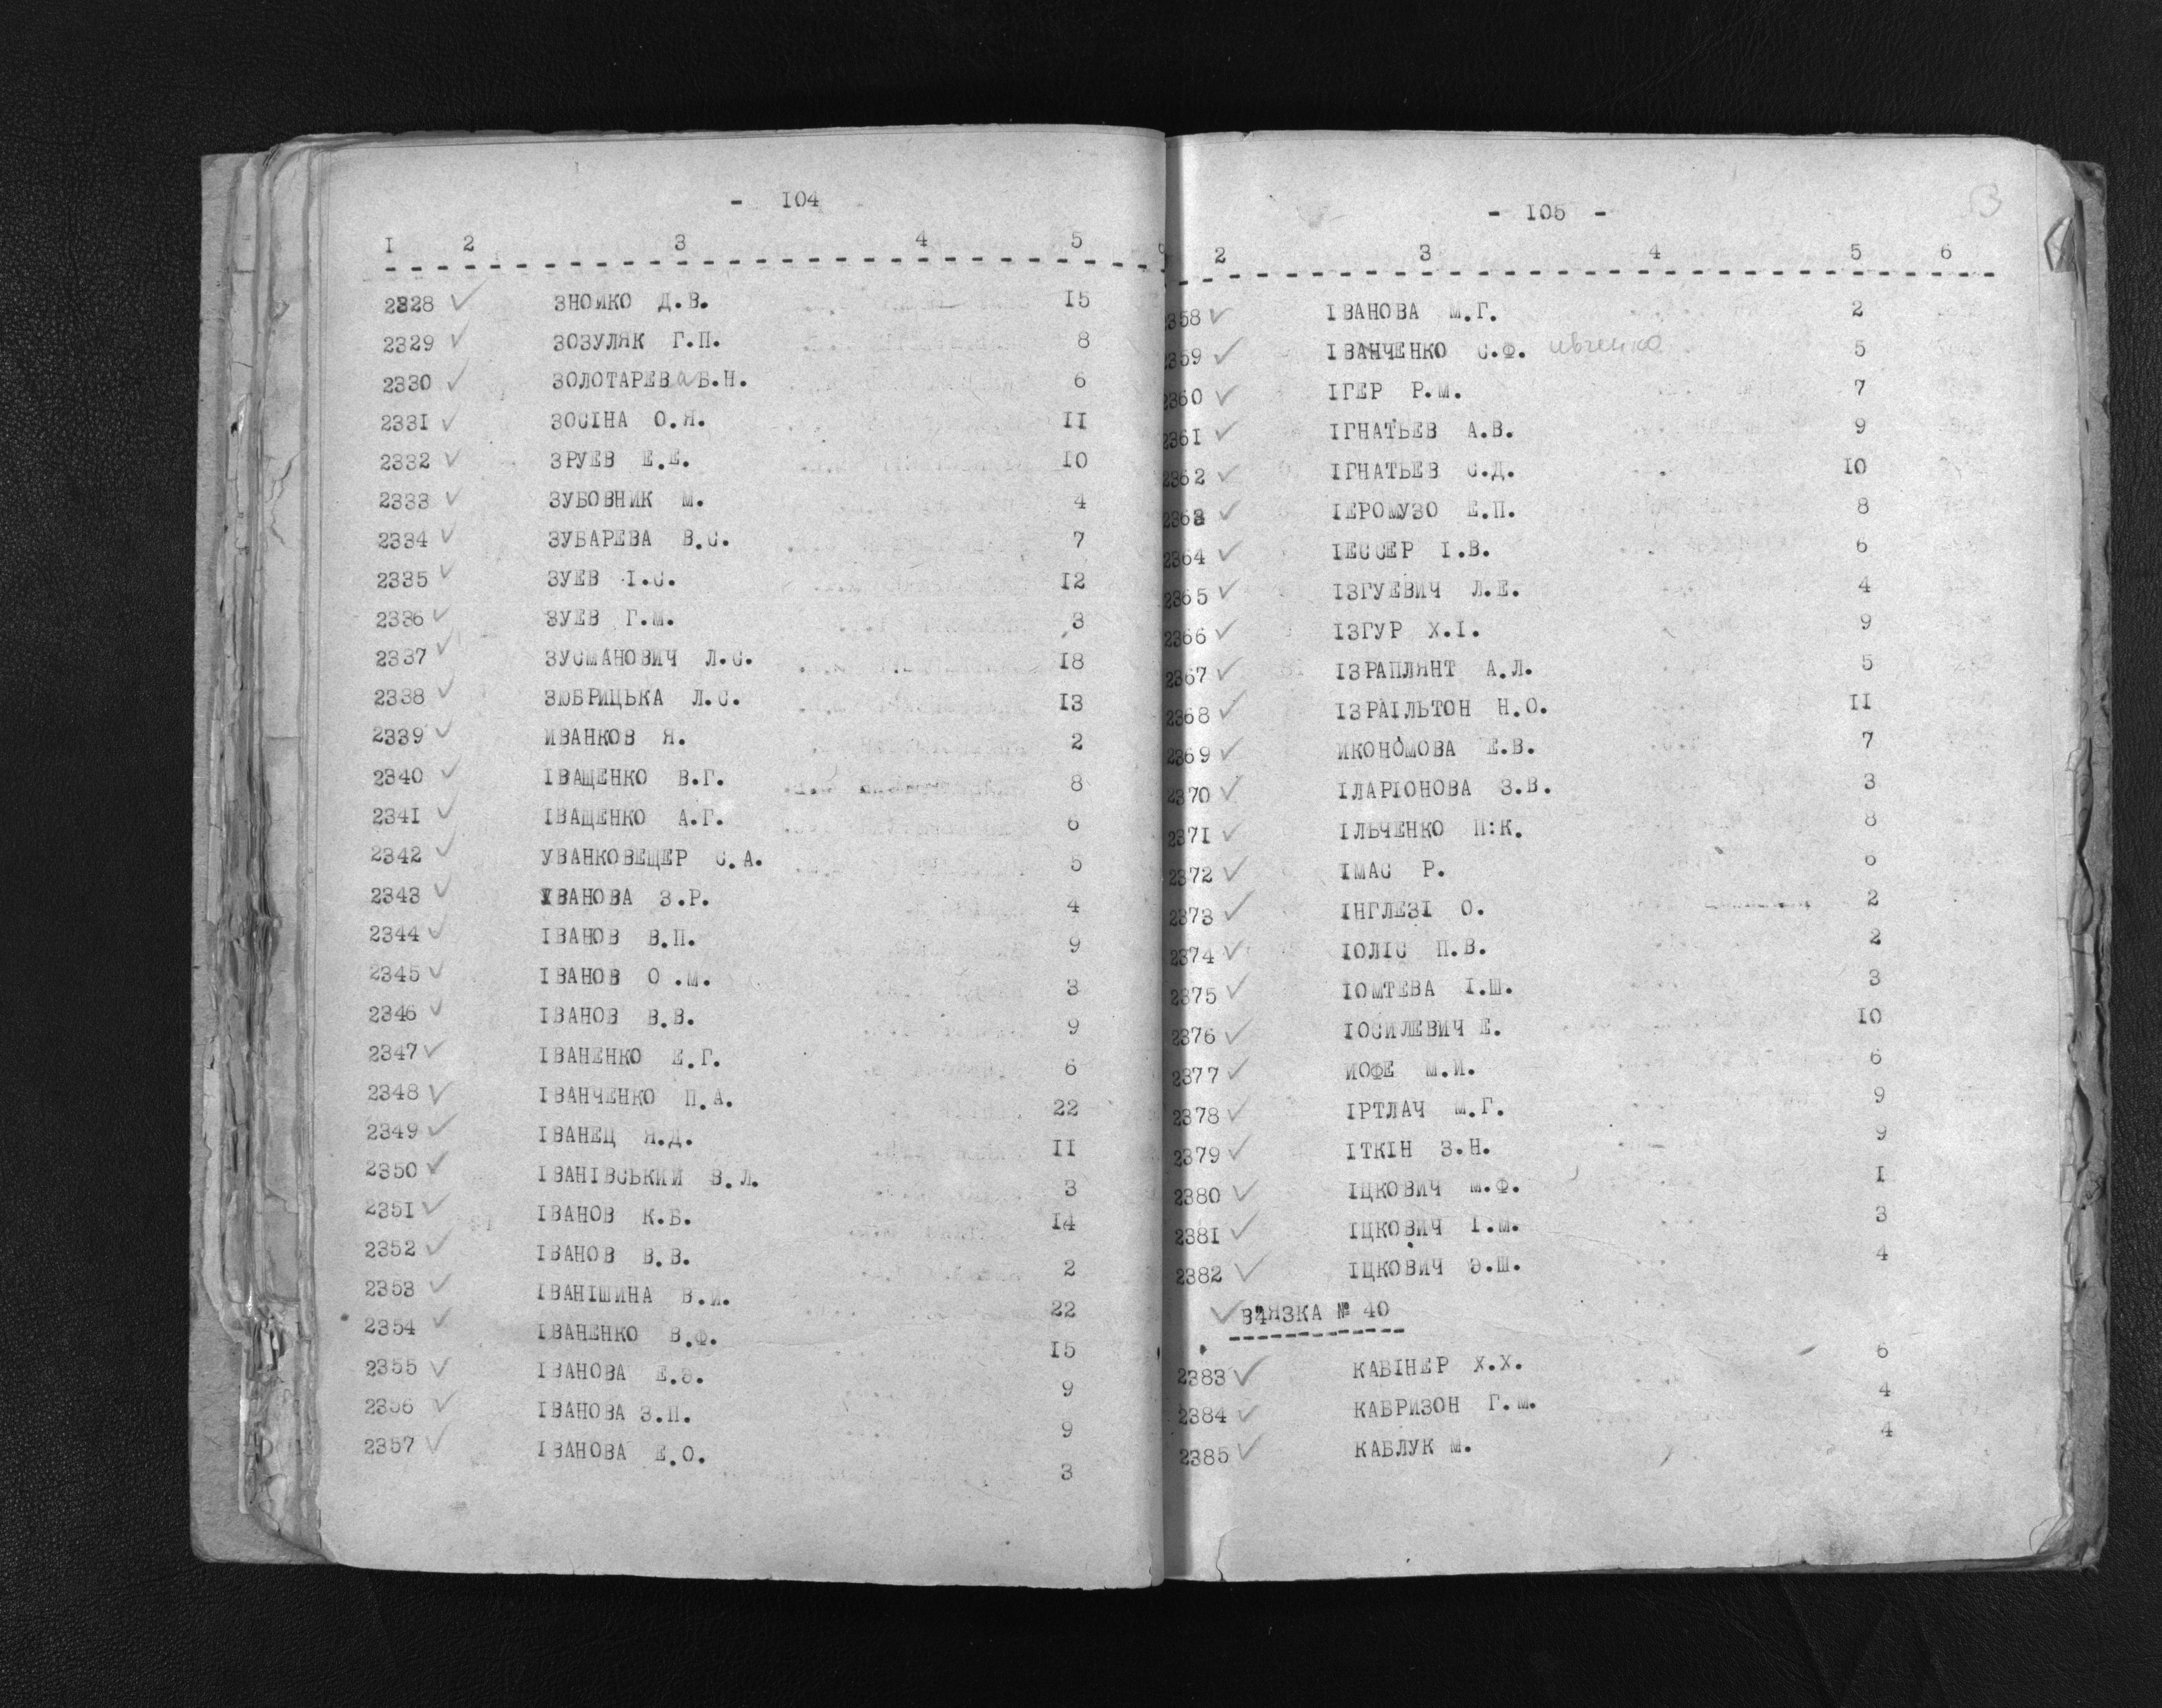 - 104
I 2 3 4 5 6
2328 ЗНОЙКО Д.В. 15
2329 ЗОЗУЛЯК Г.П. 8
2330 ЗОЛОТАРЕВа Б.Н. 6
2331 ЗОСІНА О.Я. II
2332 ЗРУЕВ Е.Е. IO
2333 ЗУБОВНИК М. 4
2334 ЗУБАРЕВА В.С. 7
2335 ЗУЕВ І.С. I2
2336 ЗУЕВ Г.М. 3
2337 ЗУСМАНОВИЧ Л.С. I8
2338 ЗЮБРИЦЬКА Л.С. I3
2339 ИВАНКОВ Я. 2
2340 ІВАЩЕНКО В.Г. 8
2341 ІВАЩЕНКО А.Г. 6
2342 УВАНКОВЕЩЕР С.А. 5
2343 ІВАНОВА З.Р. 4
2344 ІВАНОВ В.П. 9
2345 ІВАНОВ О .М. 3
2346 ІВАНОВ В.В. 9
2347 ІВАНЕНКО Е.Г. 6
2348 ІВАНЧЕНКО П.А. 22
2349 ІВАНЕЦ Я.Д. II
2350 ІВАНІВСЬКИЙ В.Л. 3
2351 ІВАНОВ К.Б. I4
2352 ІВАНОВ В.В. 2
2353 ІВАНІШИНА В.И. 22
2354 ІВАНЕНКО В.Ф. I5
2355 ІВАНОВА Е.Э. 9
2356 ІВАНОВА З.П. 9
2357 ІВАНОВА Е.О. 3
- 105 -
2 3 4 5 6
2358 ІВАНОВА М.Г. 2
2359 ІВАНЧЕНКО С.Ф. ивченко 5
2360 ІГЕР Р.М. 7
2361 ІГНАТЬЕВ А.В. 9
2362 ІГНАТЬЕВ С.Д. IO
2363 ІЕРОМУЗО Е.П. 8
2364 ІЕССЕР І.В. 6
2365 ІЗГУЕВИЧ Л.Е. 4
2366 ІЗГУР Х.І. 9
2367 ІЗРАПЛЯНТ А.Л. 5
2368 ІЗРАІЛЬТОН Н.О. II
2369 ИКОНОМОВА Е.В. 7
2370 ІЛАРІОНОВА З.В. 3
2371 ІЛЬЧЕНКО П:К. 8
2372 ІМАС Р. 6
2373 ІНГЛЕЗІ О. 2
2374 ІОЛІС П.В. 2
2375 ІОМТЕВА І.Ш. 3
2376 ІОСИЛЕВИЧ Е. IO
2377 ИОФЕ М.И. 6
2378 ІРТЛАЧ М.Г. 9
2379 ІТКІН З.Н. 9
2380 ІЦКОВИЧ М.Ф. I
2381 ІЦКОВИЧ І.М. 3
2382 ІЦКОВИЧ Э.Ш. 4
В"ЯЗКА № 40
2383 КАБІНЕР Х.Х. 6
2384 КАБРИЗОН Г.М. 4
2385 КАБЛУК М. 4